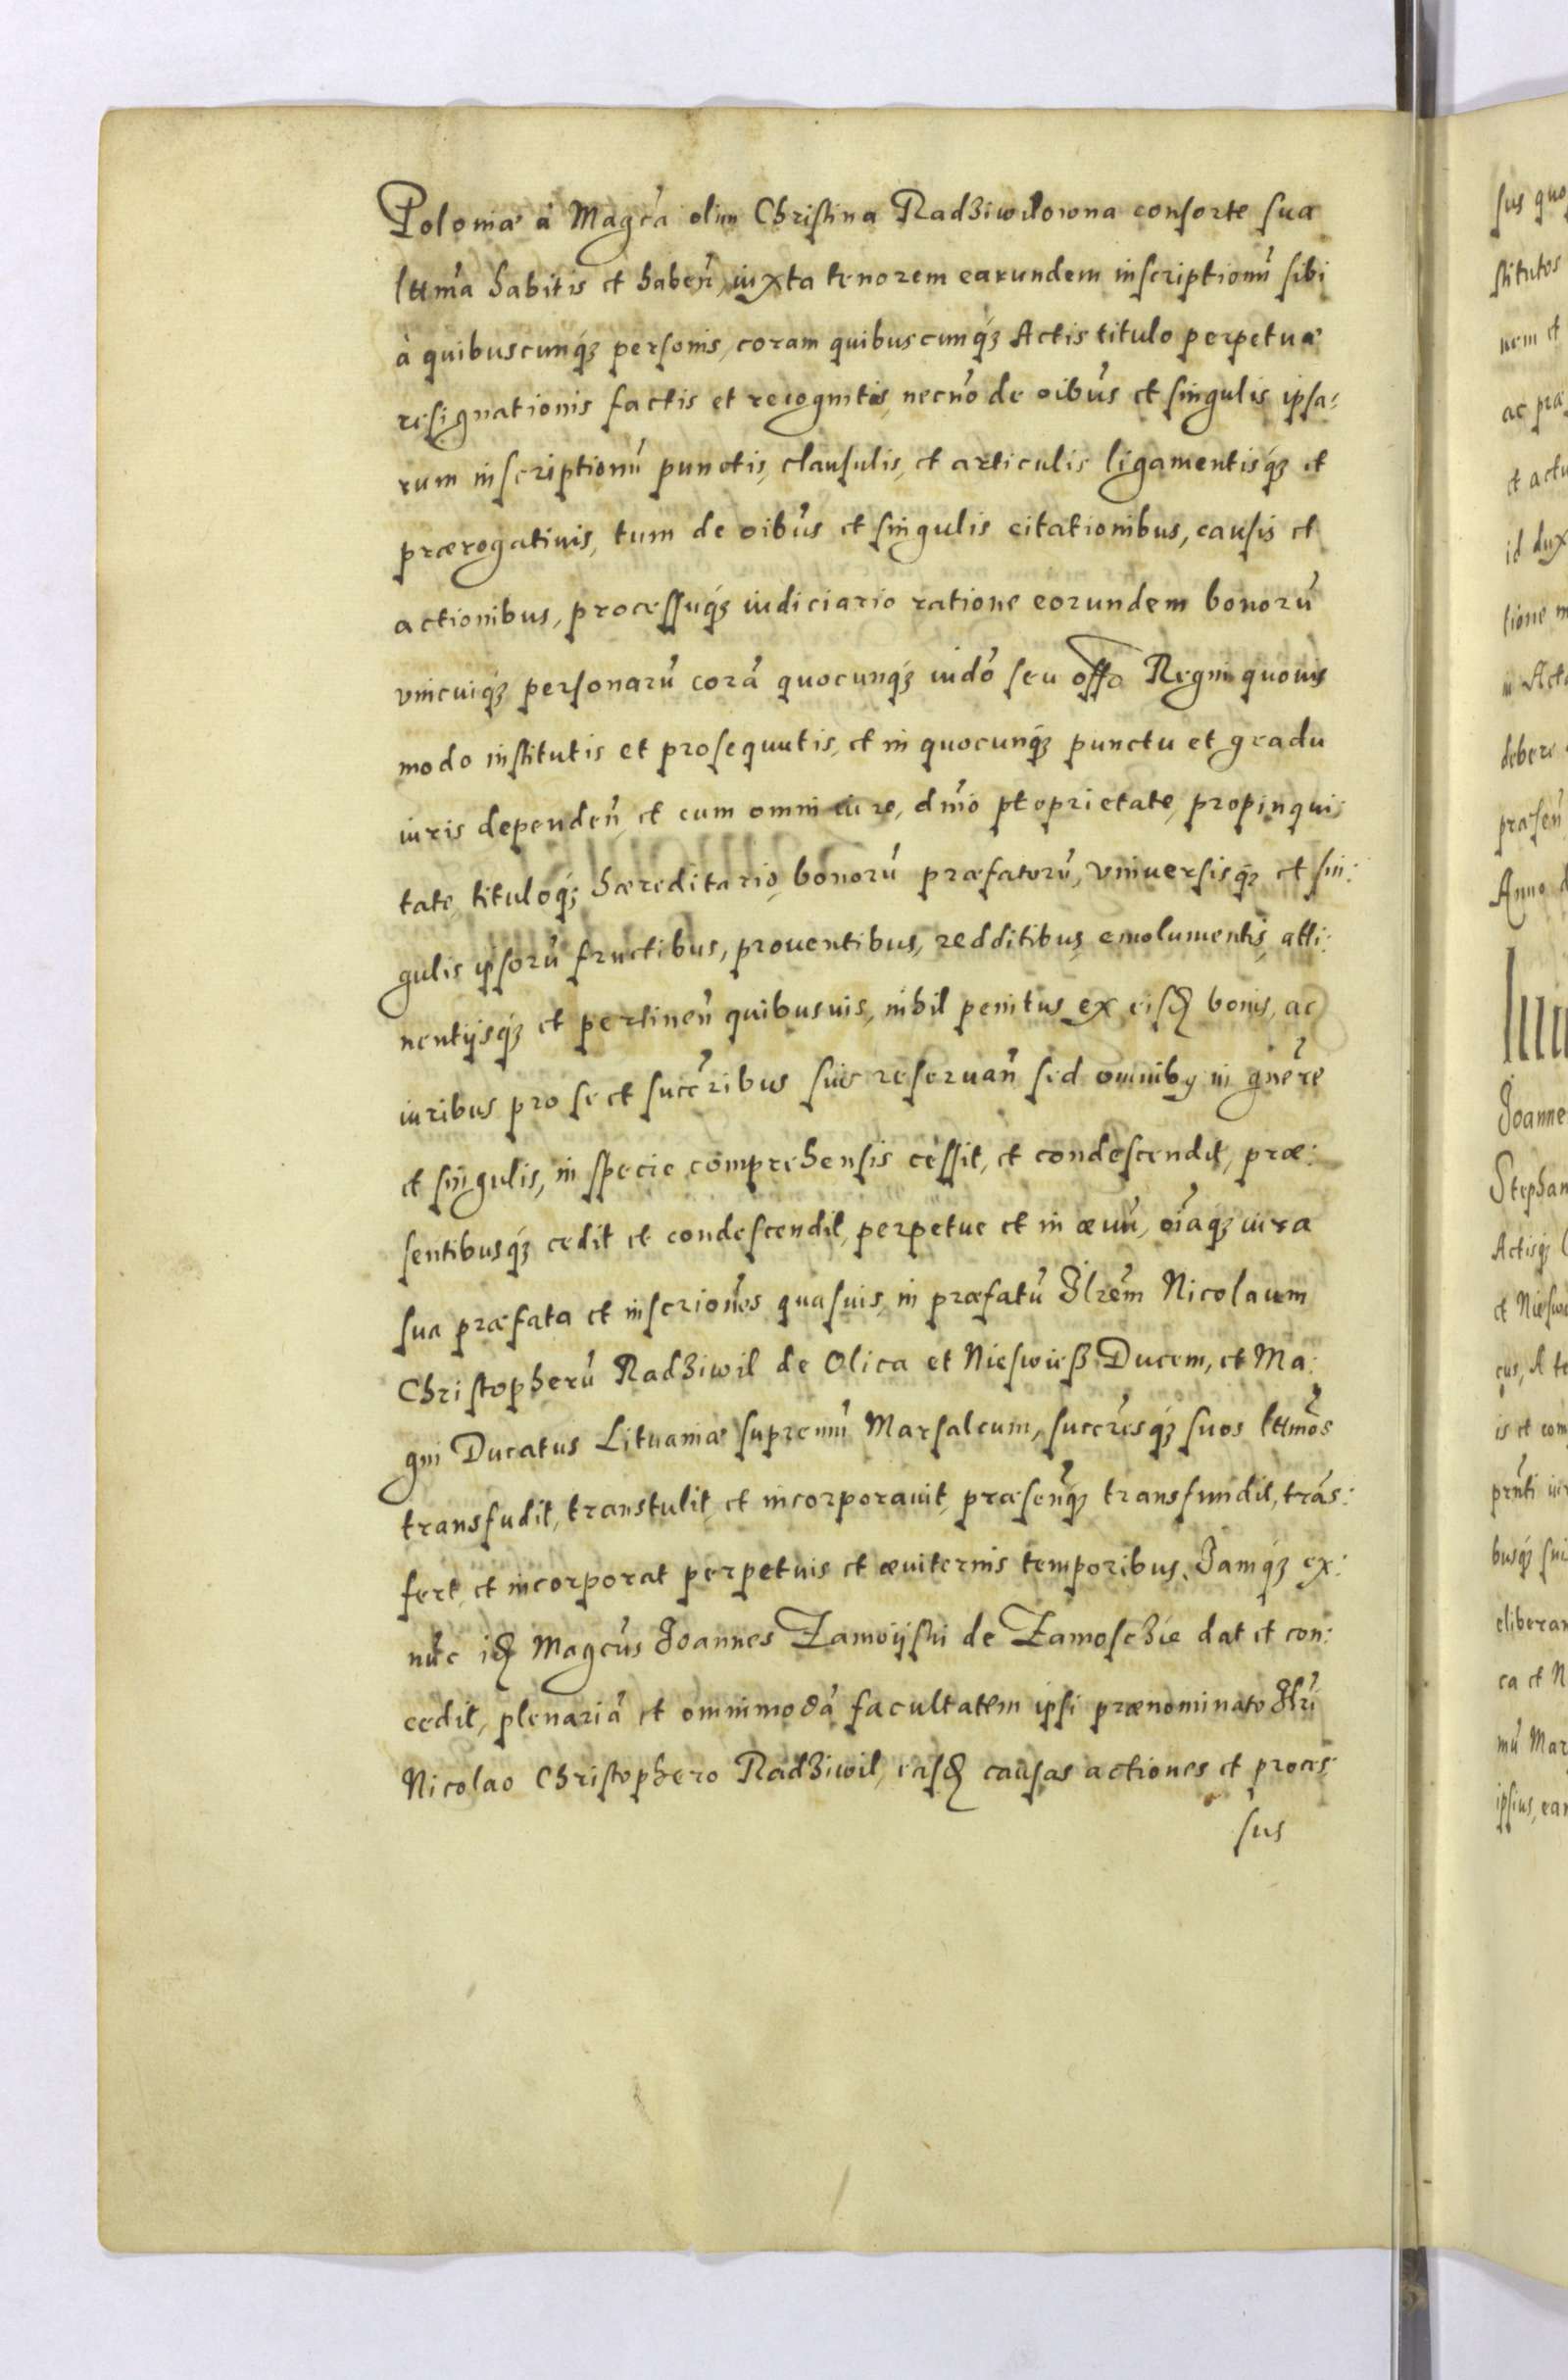 Poloniæ à Magca olim Christina Radziwilowna consorte sua
lttma habitis et haben̄, iuxta tenorem earundem inscriptionū sibi
à quibuscunqȝ personis, coram quibuscunqȝ Actis titulo perpetuæ
resignationis factis et recognitis, necno de oibus et singulis ipsa:
rum inscriptionū punctis, clausulis, et articulis ligamentisqȝ et
prærogatiuis, tum de oibus et singulis citationibus, causis et
actionibus, processuqȝ iudiciario ratione eorundem bonorū
vnicuiqȝ personarū corā quocunqȝ iudo seu offo Regni quouis
modo institutis et prosequutis, et in quocunqȝ punctu et gradu
iuris dependen̄, et cum omni iure, dnio proprietate, propinqui:
tate, tituloqȝ hæreditario, bonorū præfatorū, vniuersisqȝ et sin:
gulis ipsorū fructibus, prouentibus, redditibus, emolumentis, atti:
nentijsqȝ et pertinen̄ quibusuis, nihil penitus ex eisd bonis, ac
iuribus pro se et succribus suis reseruan̄ sed omnibq in gnere
et singulis, in specie comprehensis cessit, et condescendit, præ:
sentibusqȝ cedit et condescendit, perpetue et in æuū, oiaqȝ iura
sua præfata et inscriones quasuis, in præfatū Jlrem Nicolaum
Christopherū Radziwil de Olica et Nieswieß Ducem, et Ma:
gni Ducatus Lituaniæ supremū Marsalcum, succresqȝ suos lttmos
transfudit, transtulit, et incorporauit, præsenqȝ transfundit, trās:
fert, et incorporat perpetuis et æuiternis temporibus. Jamqȝ ex:
nūc id Magcus Joannes Zamoijski de Zamoschie dat et con:
cedit, plenariā et omnimodā facultatem ipsi prænominato Jlri
Nicolao Christophero Radziwil, easd causas actiones et proces:
sus